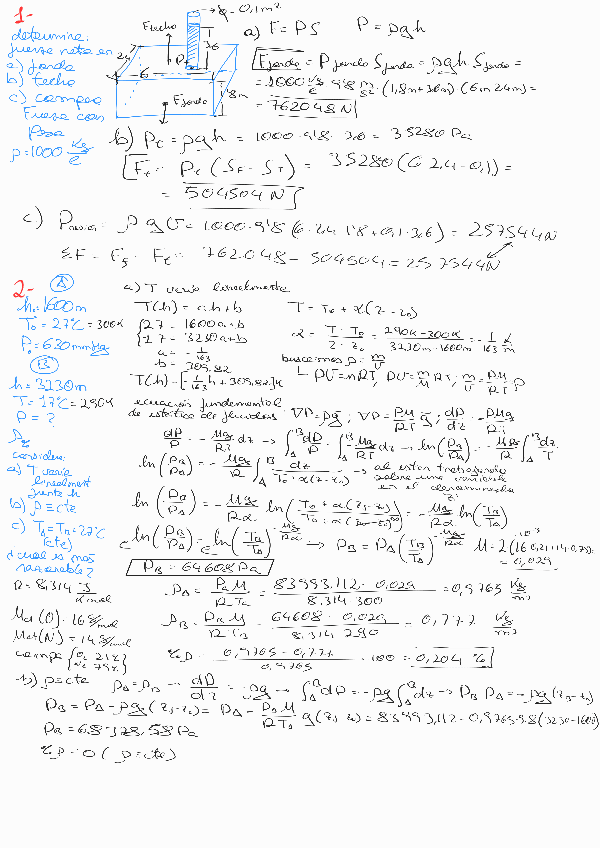 1-
determine:
fuerza neta en
a) fondo
b) techo
c) compara
Fuerza con
Peso
ρ=1000 Kg/e
F techo
0,1m²
6
8m
F fondo
a) F = PS P = ρgh
F fondo = P fondo S fondo = ρgh S fondo =
= 1000 · 9'8 m/s² · (1,8m+36m) (6m 24m) =
= 762048N
b) Pc = ρgh = 1000 · 9'8 · 3'6 = 35280 Pa
Ft = Pc (SF - ST) = 35280 (6·2,4 - 0,1) =
= 504504 N
c) P = ρgV = 1000 · 9'8 (6·24·1'8+0,1·3,6) = 257544N
ΣF = Ff - Ft = 762.048 - 504504 = 257544N
2- A
h = 1600m
T₀ = 27ºC = 300K
P₀ = 630 mmHg
B
h = 3230m
T = 17ºC = 290K
P = ?
considere:
a) T varía
linealment
b) ρ = cte
c) TA = TB = 27ºC
(cte)
¿cual es mas
razonable?
R = 8.314 J/K mol
Mat (O) = 16 g/mol
Mat (N) = 14 g/mol
O₂ 21%
N₂ 79%
a) T varía linealmente
T(h) = a·h + b T = T₀ + α(z - z₀)
27 = 1600a + b
17 = 3230a + b
a = -1/163
b = 309,82
α = (T - T₀)/(z - z₀) = (290K - 300K)/(3230m - 1600m) = -1/163 K/m
buscamos ρ = m/V
PV = nRT, PV = m/M RT, m/V = PM/RT = ρ
T(h) = [-1/163 h + 309,82] K
ecuación fundamental
de estática de fluidos: ∇P = ρg, ∇P = PM/RT g, dP/dz = -PMg/RT
dP/P = -Mg/RT dz → ∫ dP/P = ∫ -Mg/RT dz → ln(PB/PA) = -Mg/R ∫ dz/T
ln(PB/PA) = -Mg/R ∫ dz/(T₀ + α(z - z₀)) → al estar trabajando
sobre una variable
en el denominador
ln(PB/PA) = -Mg/Rα ln((T₀ + α(z₁ - z₀))/(T₀ + α(z₀ - z₀))) = -Mg/Rα ln(TB/TA)
e ln(PB/PA) = e ln(TB/TA)^(-Mg/Rα) → PB = PA (TB/TA)^(-Mg/Rα) M = 2(16·0,21+14·0,79)·10⁻³
= 0,029
PB = 64608 Pa
ρA = PA M/R·TA = 83993.112 · 0,029/8.314·300 = 0,9765 Kg/m³
ρB = PB M/R TB = 64608 · 0,029/8.314·290 = 0,777 Kg/m³
%ρ = (0,9765 - 0,777)/0,9765 · 100 = 0,204 %
b) ρ = cte ρA = ρB → dP/dz = -ρg → ∫ dP = -ρg ∫ dz → PB - PA = -ρg(z₁ - z₀)
PB = PA - ρg(z₁ - z₀) = PA - PA M/R TA g(z₁ - z₀) = 83993,112 - 0,9765·9.8(3230-1600)
PB = 68.328,58 Pa
%ρ = 0 (ρ = cte)